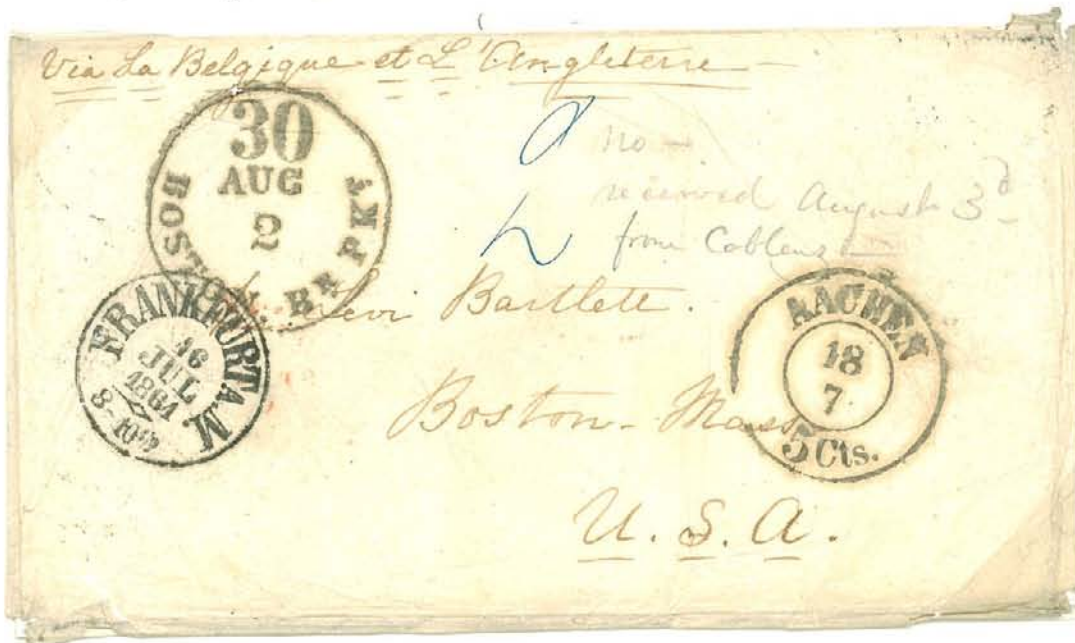 Via La Belgique et L'Angleterre
30
AUG
2
BOSTON BR PKT
no
received August 3d
from Coblenz
Levi Bartlett.
FRANKFURT A.M.
16
JUL
1861
8-10
AACHEN
18
7
5 Cts.
Boston - Mass
U. S. A.